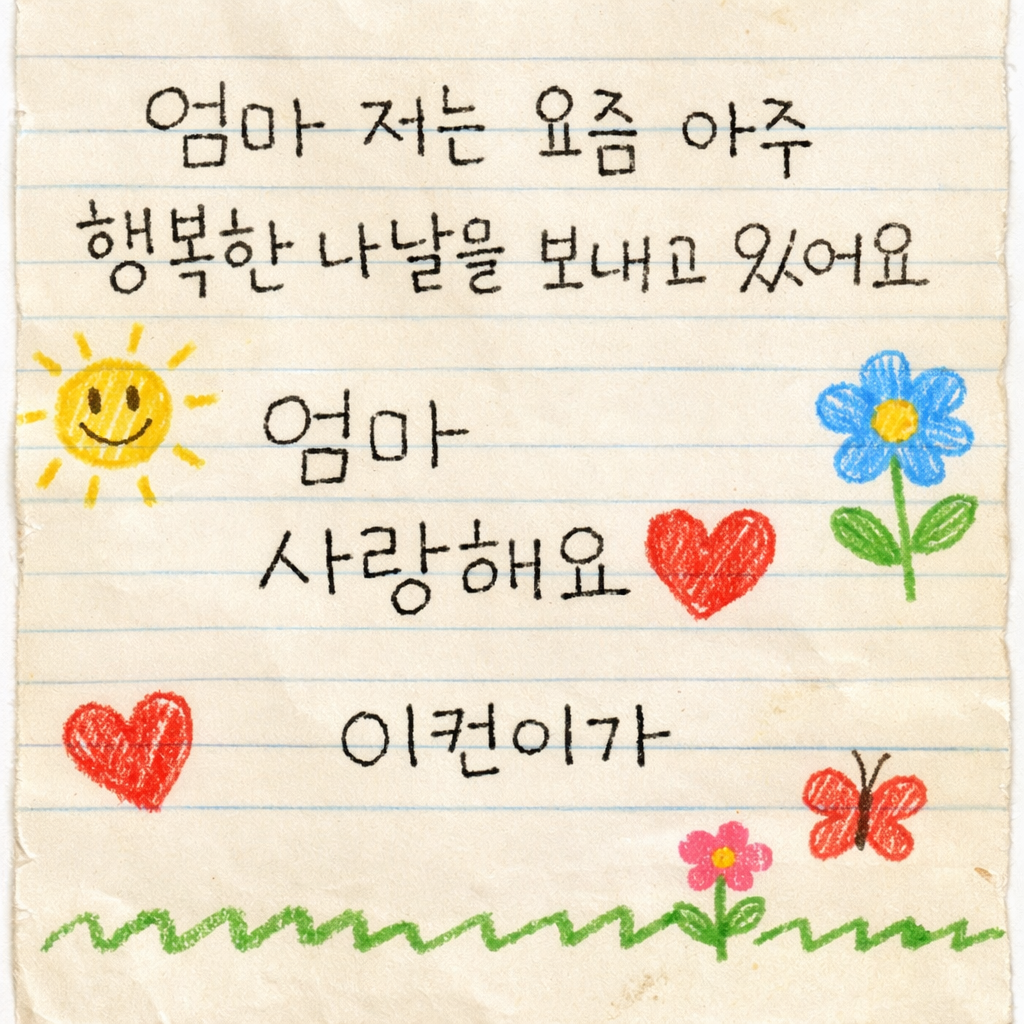 엄마 저는 요즘 아주
행복한 나날을 보내고 있어요
엄마
사랑해요
이컨이가